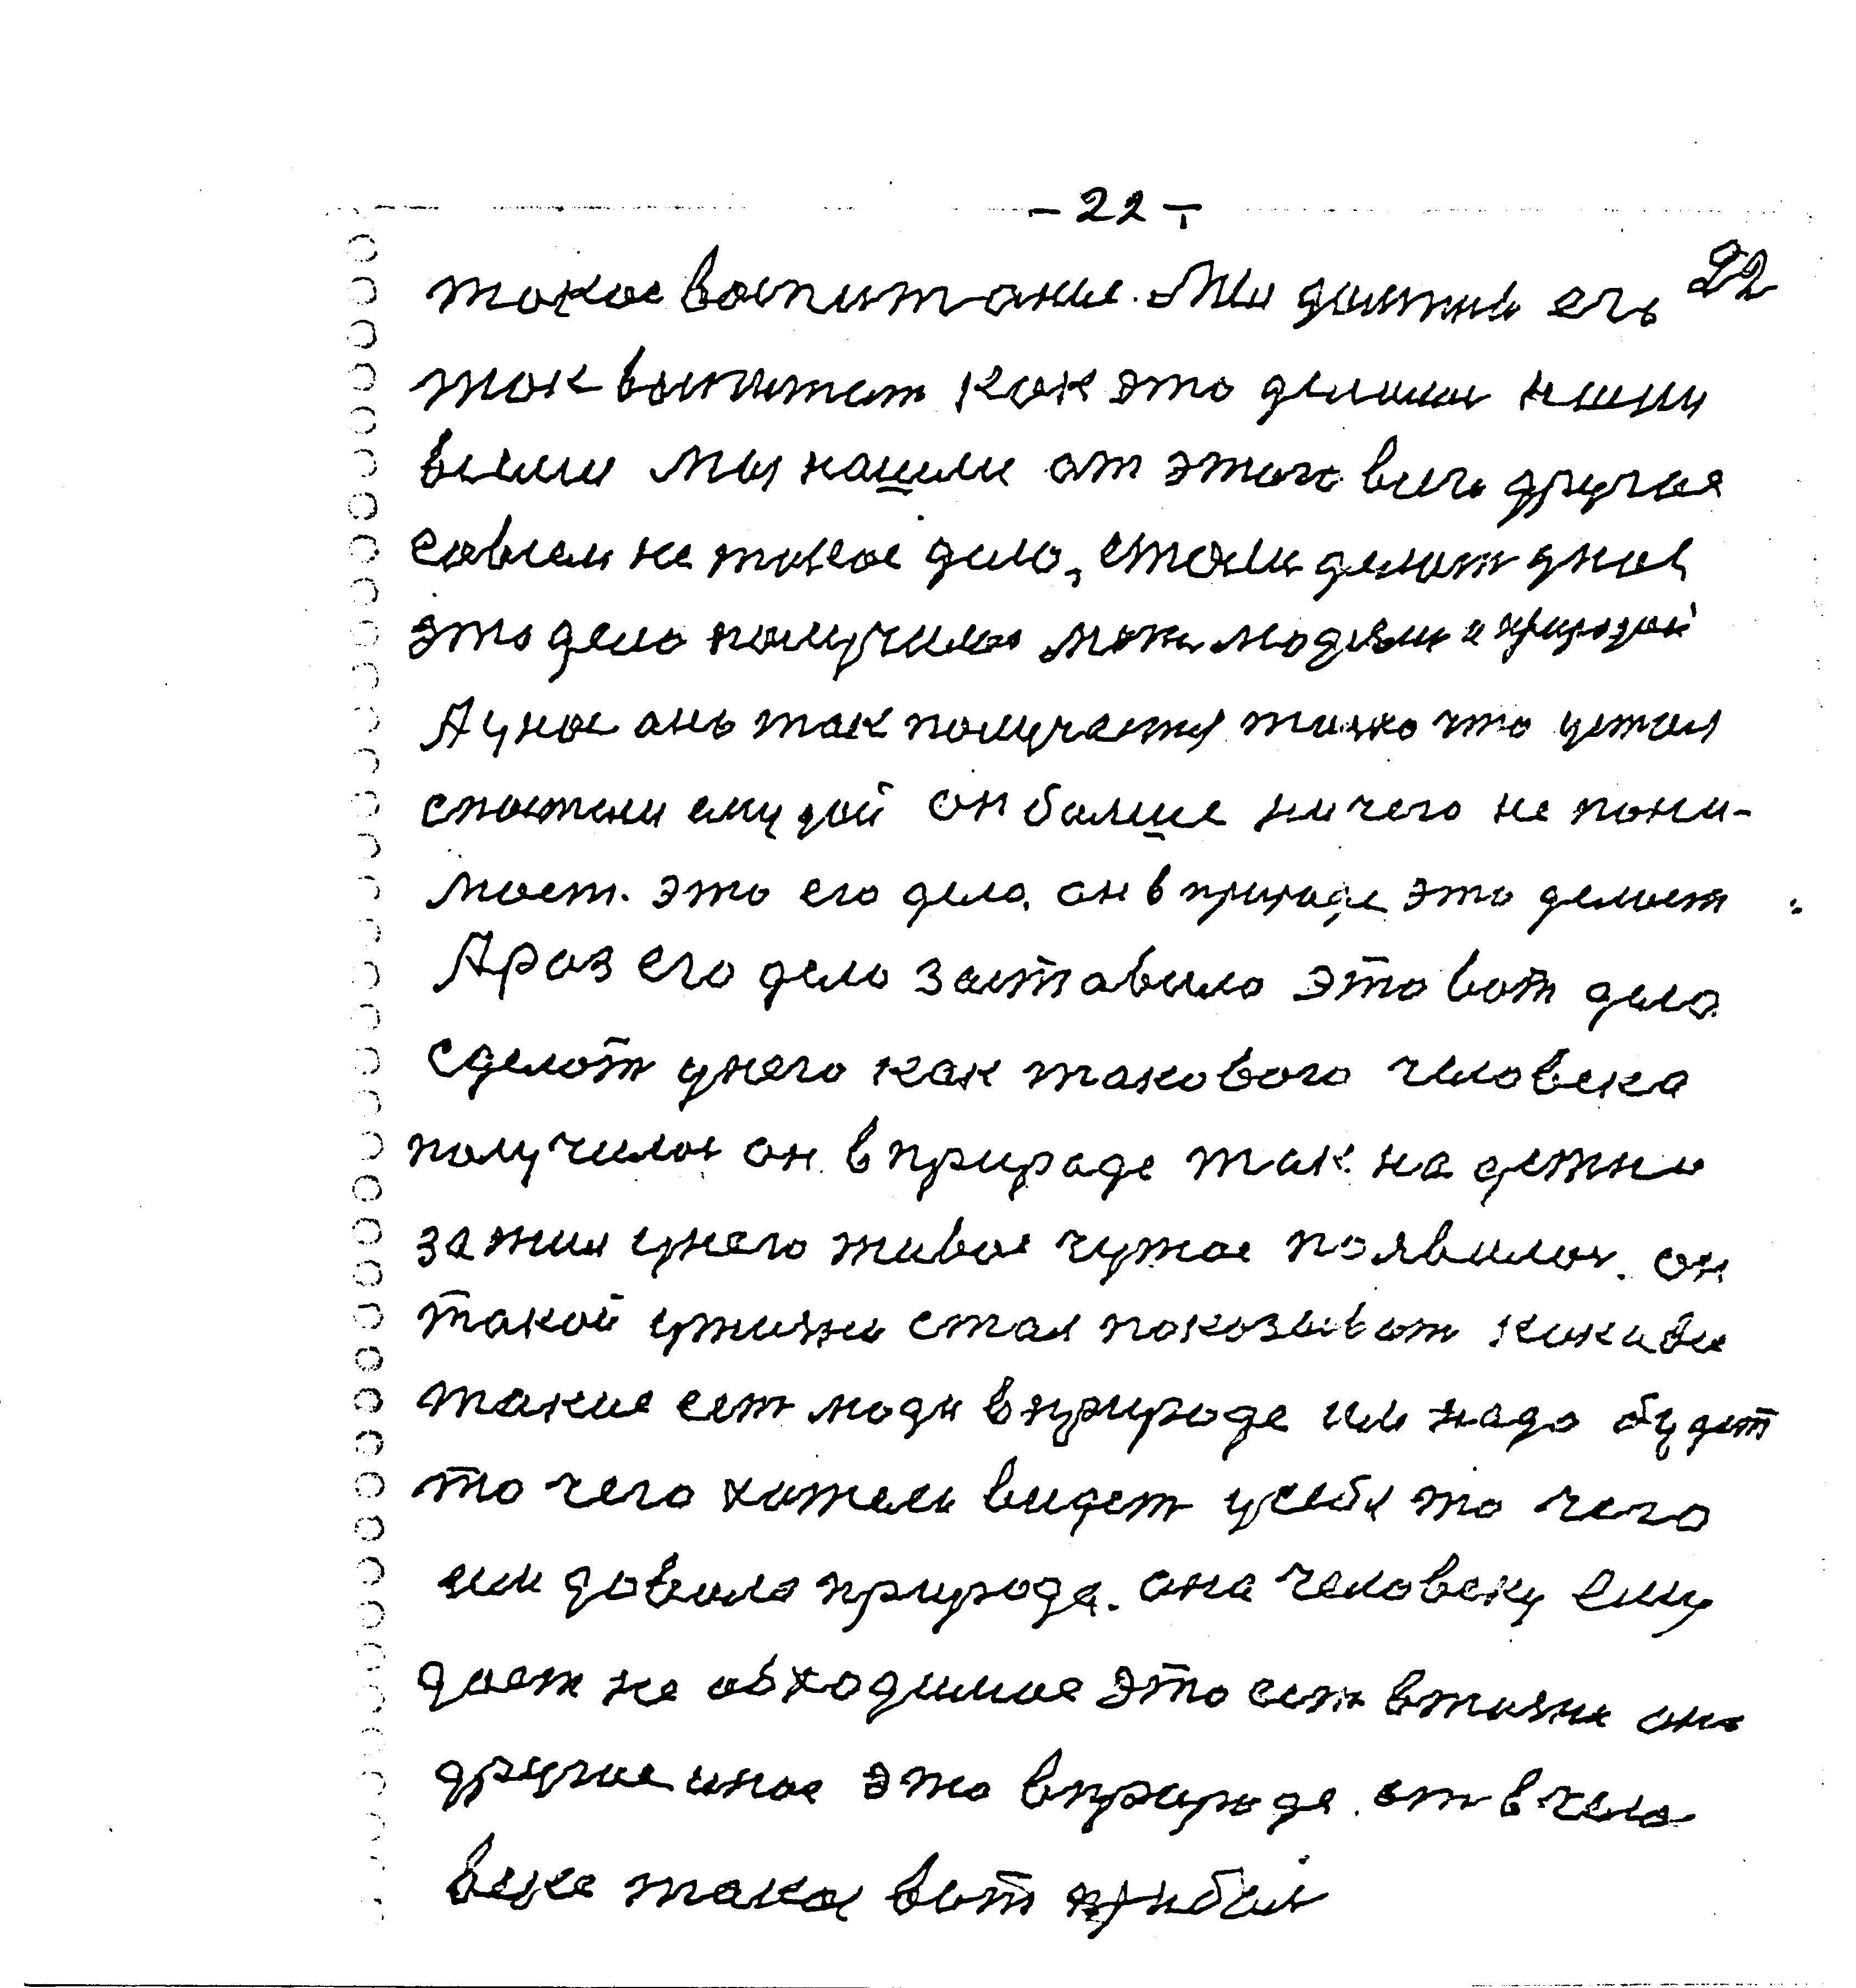 - 22 -
22
такое воспитание. Мы должны его
так воспитат как это делали наши
высши мы нашли от этого всего другое
совсем не такое дело, стали делат у нас
это дело получилос меж людями и природой
А у нас оно так получается толко что устал
спостели ему дой он болше ничего не пони-
мает. это его дело, он в природе это делает
А раз его дело заставило это вот дело
сделат у него как такового человека
получилос он в природе так на
у него живое чужое появилос. он
такой у жизни стал показыват каковы
такие ест люди в природе им надо будет
то чего хотели видет у себя то чего
им природа. она человеку ему
дает не обходимое это ест в жизни оно
другое иное это в природе. от в чело
веке такая вот